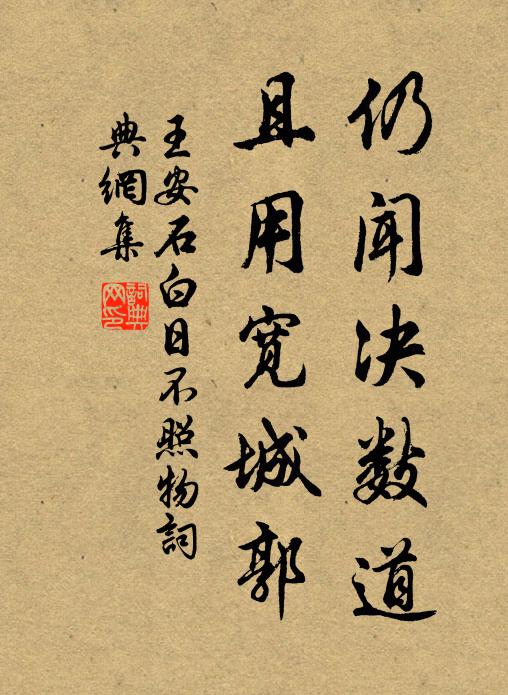 仍闻决数道
且用宽城郭
王安石白日不照物詞
典網集
詞典網印